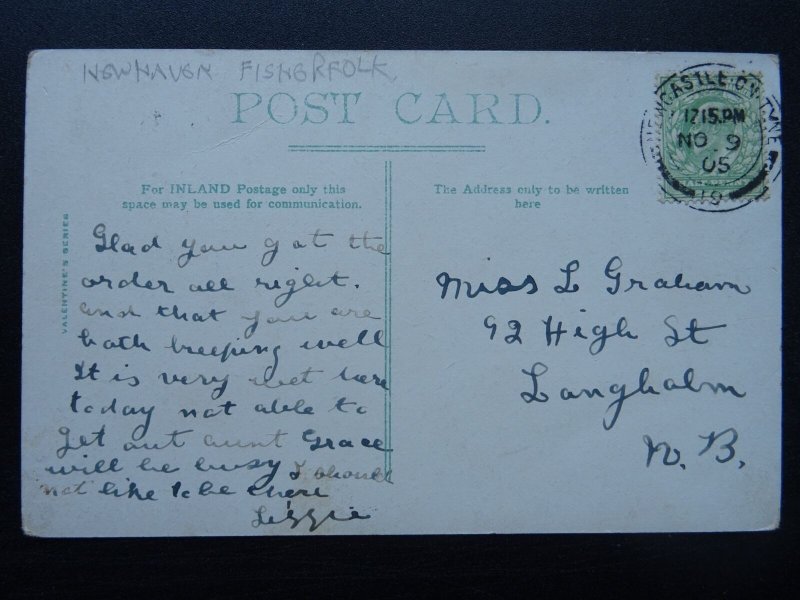 NEWHAVEN FISHERFOLK
POST CARD.
NEWCASTLE-ON-TYNE
12 15.PM
NO 9
05
For INLAND Postage only this
space may be used for communication.
The Address only to be written
here
VALENTINE'S SERIES
Glad you got the
order all right.
and that you are
both keeping well
It is very wet here
today not able to
get out aunt Grace
will be busy I should
not like to be there
Lizzie
Miss L Graham
92 High St
Langholm
N. B.